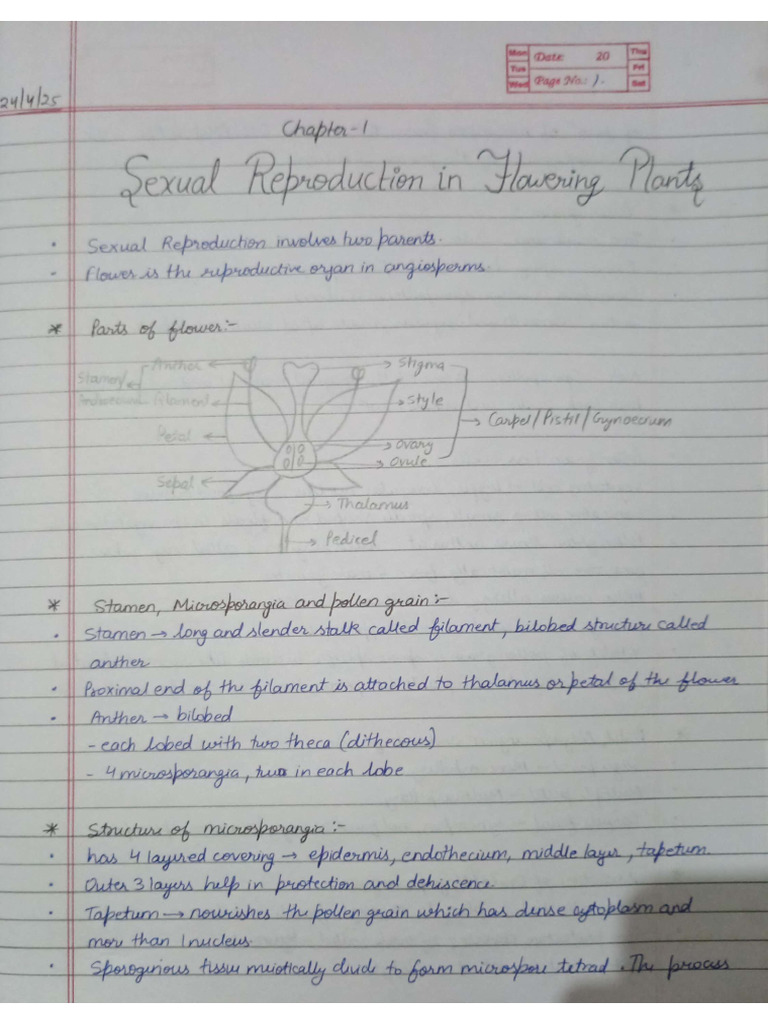 Mon Date: 20 Thu
Tue Fri
Wed Page No.: 1. Sat
24/4/25
Chapter-1
Sexual Reproduction in Flowering Plants
• Sexual Reproduction involves two parents.
- Flower is the reproductive organ in angiosperms.
* Parts of flower:-
Anther
Stamen/
Androecium
Filament
Petal
Sepal
Stigma
Style
Ovary
Ovule
Carpel/Pistil/Gynoecium
Thalamus
Pedicel
* Stamen, Microsporangia and pollen grain:-
• Stamen → long and slender stalk called filament, bilobed structure called
anther
• Proximal end of the filament is attached to thalamus or petal of the flower
• Anther → bilobed
- each lobed with two theca (dithecous)
- 4 microsporangia, two in each lobe
* Structure of microsporangia:-
• has 4 layered covering → epidermis, endothecium, middle layer, tapetum.
• Outer 3 layers help in protection and dehiscence.
• Tapetum → nourishes the pollen grain which has dense cytoplasm and
more than 1 nucleus.
• Sporogenious tissue meiotically divide to form microspore tetrad. The process